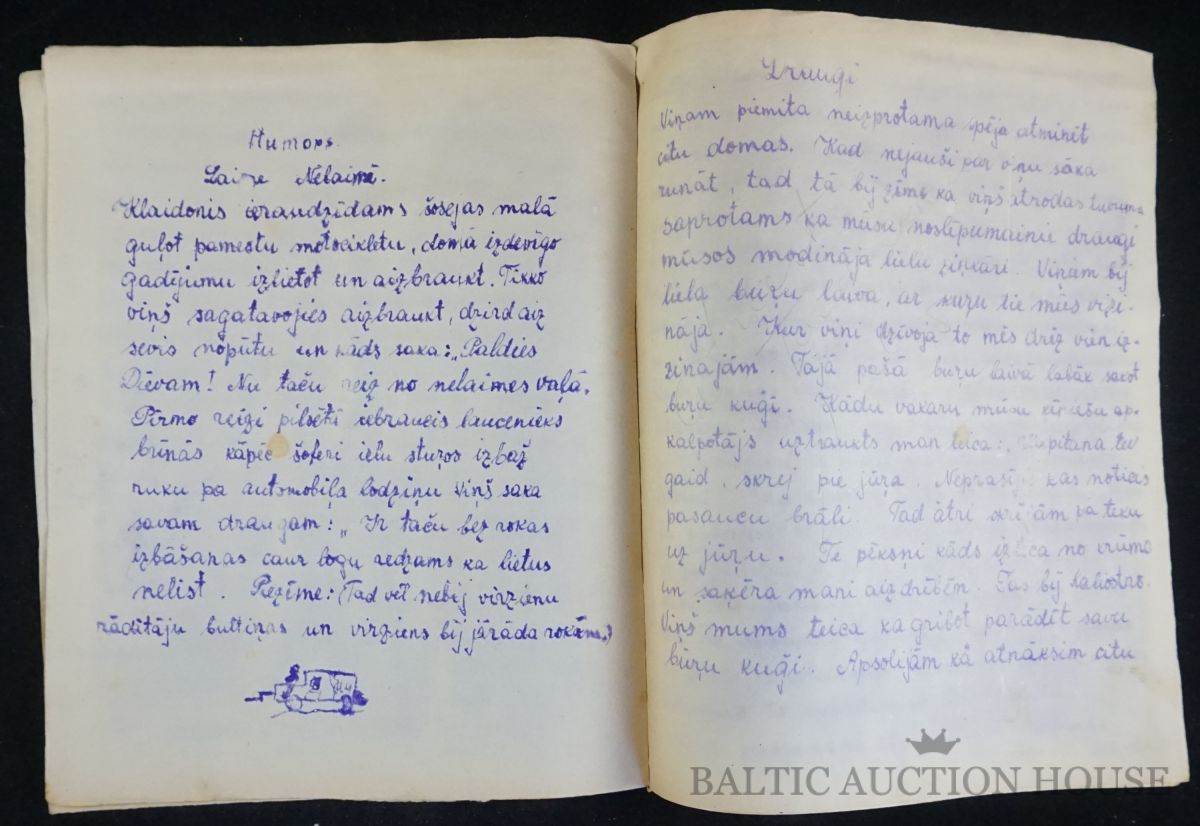 Humors.
Laime Nelaimē.
Klaidonis ieraudzīdams šosejas malā
guļot pamestu motocikletu, domā izdevīgo
gadījumu izlietot un aizbraukt. Tikko
viņš sagatavojies aizbraukt, dzird aiz
sevis nopūtu un kāds saka: „Paldies
Dievam! Nu taču reiz no nelaimes vaļā.
Pirmo reizi pilsētā iebraucis laucenieks
brīnās kāpēc šoferi ielu stūros izbāž
ruku pa automobiļa lodziņu Viņš saka
savam draugam: „Ir taču bez rokas
izbāšanas caur logu redzams ka lietus
nelīst. Piezīme: (Tad vēl nebij virzienu
rādītāju bultiņas un virziens bij jārāda rokām.)
Draugi
Viņam piemita neizprotama spēja atminēt
citu domas. Kad nejauši par viņu sāka
runāt, tad tā bij zīme ka viņš atrodas tuvumā
saprotams ka mūsu noslēpumainie draugi
mūsos modināja lielu ziņkāri. Viņam bij
liela buru laiva, ar kuru tie mūs vizi-
nāja. Kur viņi dzīvoja to mēs drīz vien iz-
zinājām. Tajā pašā buru laivā labāk sacīt
buru kuģī. Kādu vakaru mūsu ap-
kalpotājs uztraukts man teica: „Kapitana tev
gaid, skrej pie jūra. Neprasīju kas noticis
pasaucu brāli. Tad ātri skrijām pa teku
uz jūru. Te pēkšņi kāds izlīca no krūma
un saķēra mani aiz drēbēm. Tas bij Kaliostro.
Viņš mums teica ka gribot parādīt savu
būru kuģi. Apsolijām kā atnāksim citu
BALTIC AUCTION HOUSE